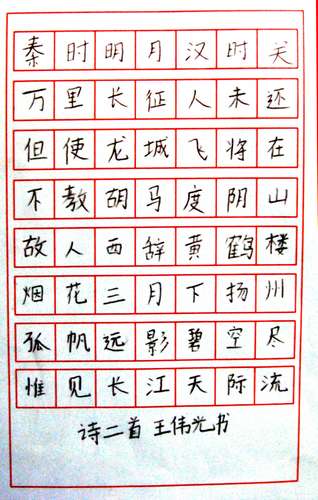 秦时明月汉时关
万里长征人未还
但使龙城飞将在
不教胡马度阴山
故人西辞黄鹤楼
烟花三月下扬州
孤帆远影碧空尽
惟见长江天际流
诗二首 王伟光书